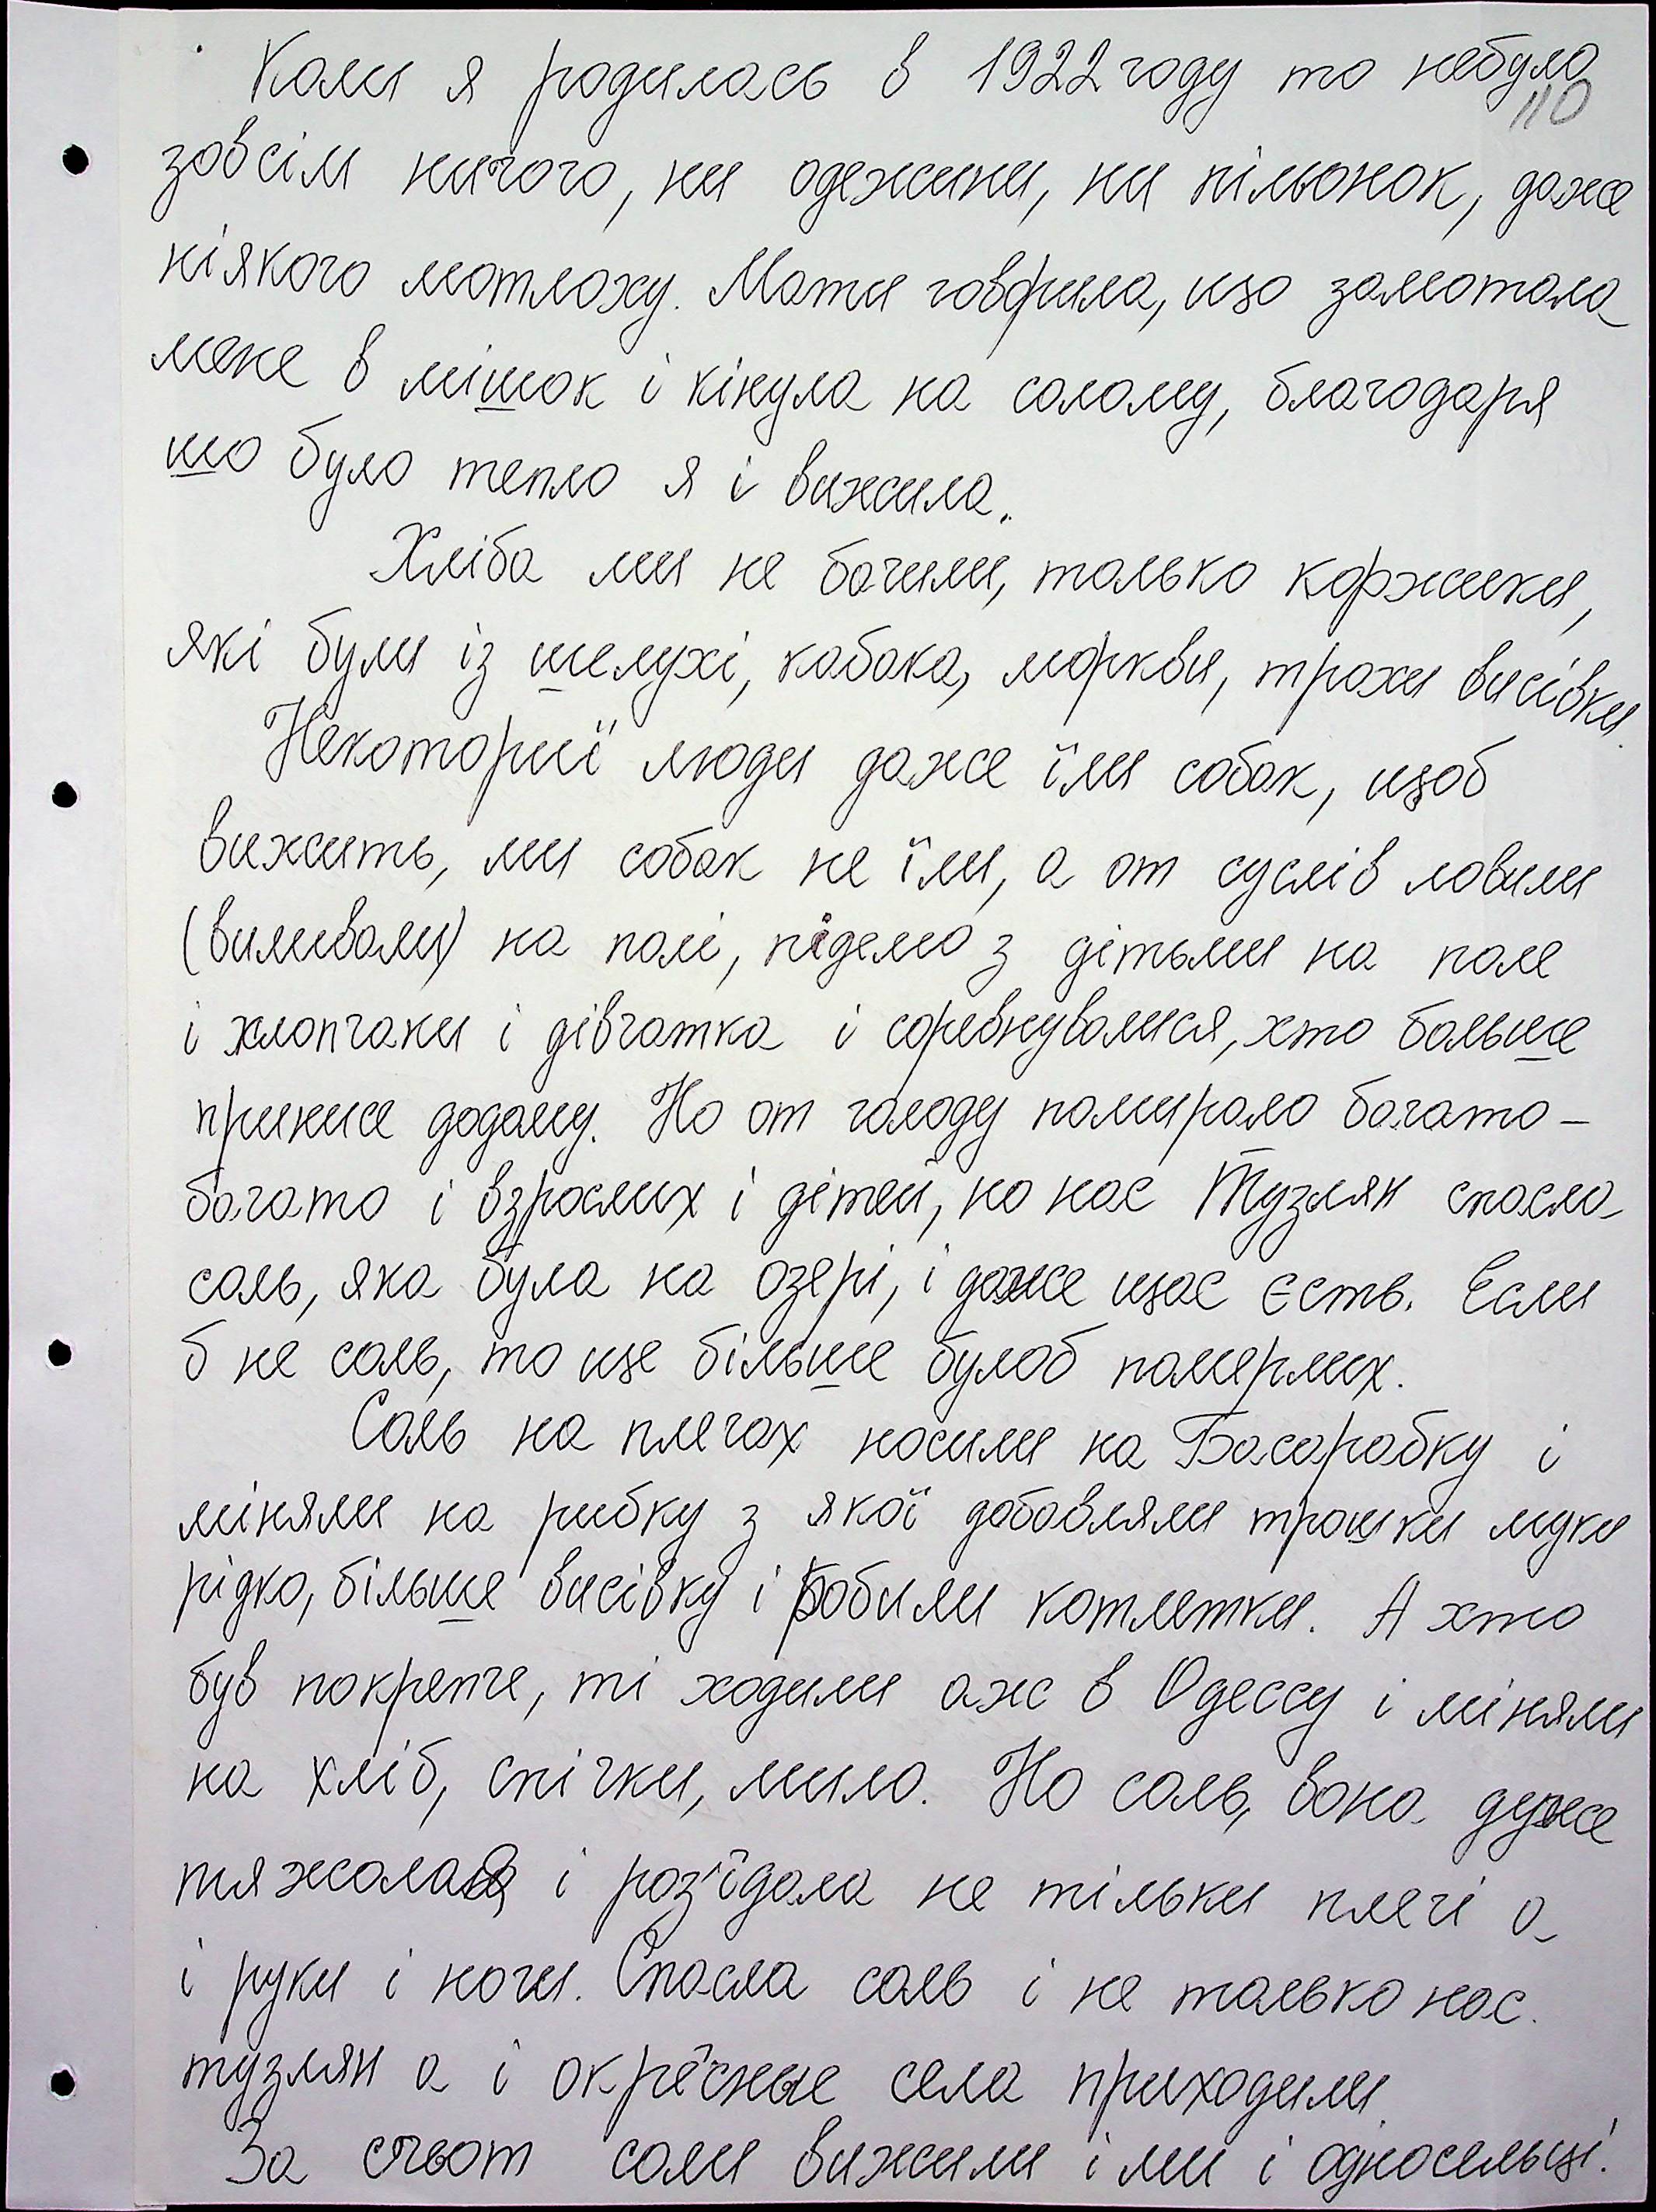 Коли я родилась в 1922 году то небуло
110
зовсім ничого, ни одежини, ни пільонок, даже
ніякого мотлоху. Мати говорила, що замотала
мене в мішок і кінула на солому, благодаря
шо було тепло я і вижила.
Хліба ми не бачили, только коржики,
які були із шелухі, кабака, моркви, трохи висівки.
Некоториї люди даже їли собак, щоб
вижить, ми собак не їли, а от суслів ловили
(виливали) на полі, підемо з дітьми на поле
і хлопчаки і дівчатка і соревнувалися, хто больше
принисе додому. Но от голоду помирало багато-
багато і взрослих і дітей, но нас Тузлян спасла
соль, яка була на озері, і даже щас єсть. Если
б не соль, то ще більше булоб померлих.
Соль на плечах носили на Басарабку і
міняли на рибку з якої добавляли трошки муки
рідко, більше висівку і робили котлетки. А хто
був покрепче, ті ходили аж в Одессу і міняли
на хліб, спічки, мило. Но соль, вона дуже
тяжолая і роз'їдала не тільки плечі а
і руки і ноги. Спасла соль і не только нас
тузлян а і окрёсные села приходили.
За счьот соли вижили і ми і односельці.